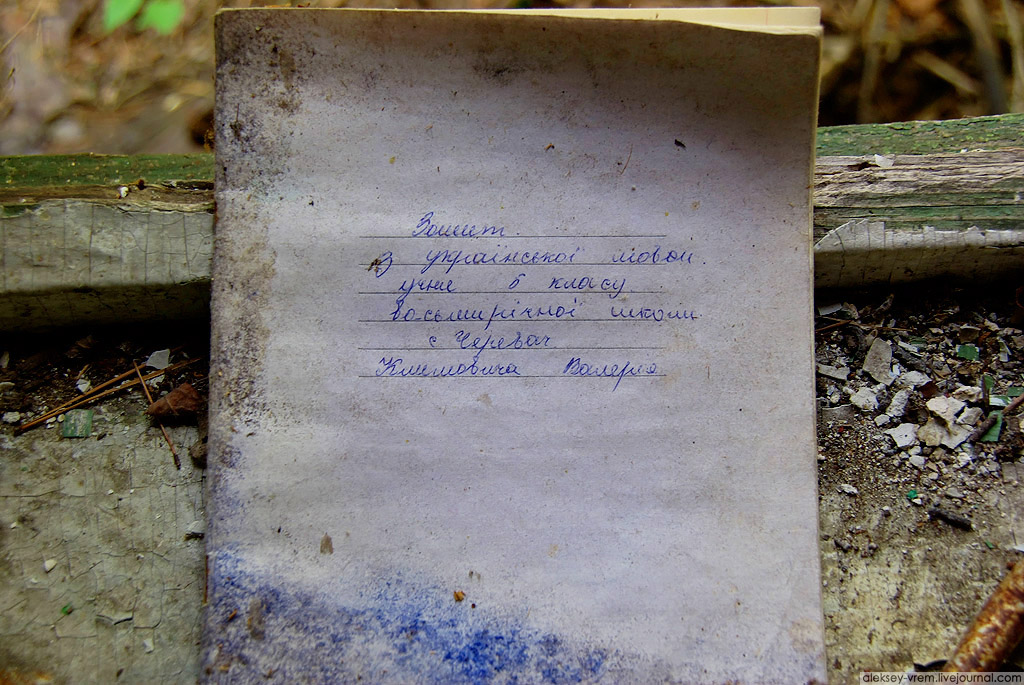 Зошит
З української мови
учня 6 класу
восьмирічної школи
с Черевач
Климовича Валерія
aleksey-vrem.livejournal.com